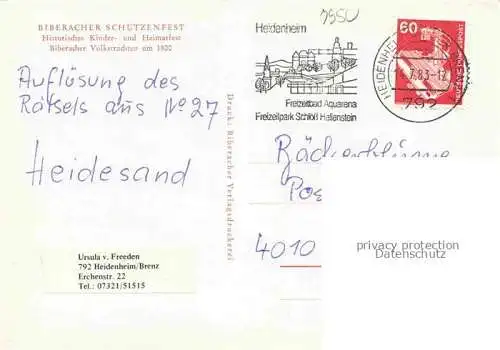 BIBERACHER SCHÜTZENFEST
Historisches Kinder- und Heimatfest
Biberacher Volkstrachten um 1800
Auflösung des
Rätsels aus No 27
Heidesand
Ursula v. Freeden
792 Heidenheim/Brenz
Erchenstr. 22
Tel.: 07321/51515
Druck: Biberacher Verlagsdruckerei
Heidenheim
Freizeitbad Aquarena
Freizeitpark Schloß Hellenstein
HEIDENHEIM
83-12
792
60
Bäckerblume
4010
privacy protection
Datenschutz